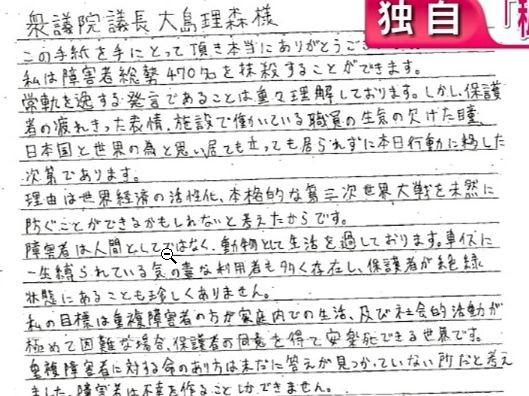 衆議院議長大島理森様
独自
この手紙を手にとって頂き本当にありがとうござ
私は障害者総勢470名を抹殺することができます。
常軌を逸する発言であることは重々理解しております。しかし、保護
者の疲れきった表情、施設で働いている職員の生気の欠けた瞳
日本国と世界の為と思い居ても立っても居られずに本日行動に移した
次第であります。
理由は世界経済の活性化、本格的な第三次世界大戦を未然に
防ぐことができるかもしれないと考えたからです。
障害者は人間としてではなく、動物として生活を過しております。車イスに
一生縛られている気の毒な利用者も多く存在し、保護者が絶縁
状態にあることも珍しくありません。
私の目標は重複障害者の方が家庭内での生活、及び社会的活動が
極めて困難な場合、保護者の同意を得て安楽死できる世界です。
重複障害者に対する命のあり方は未だに答えが見つかっていない所だと考え
ました。障害者は不幸を作ることしかできません。